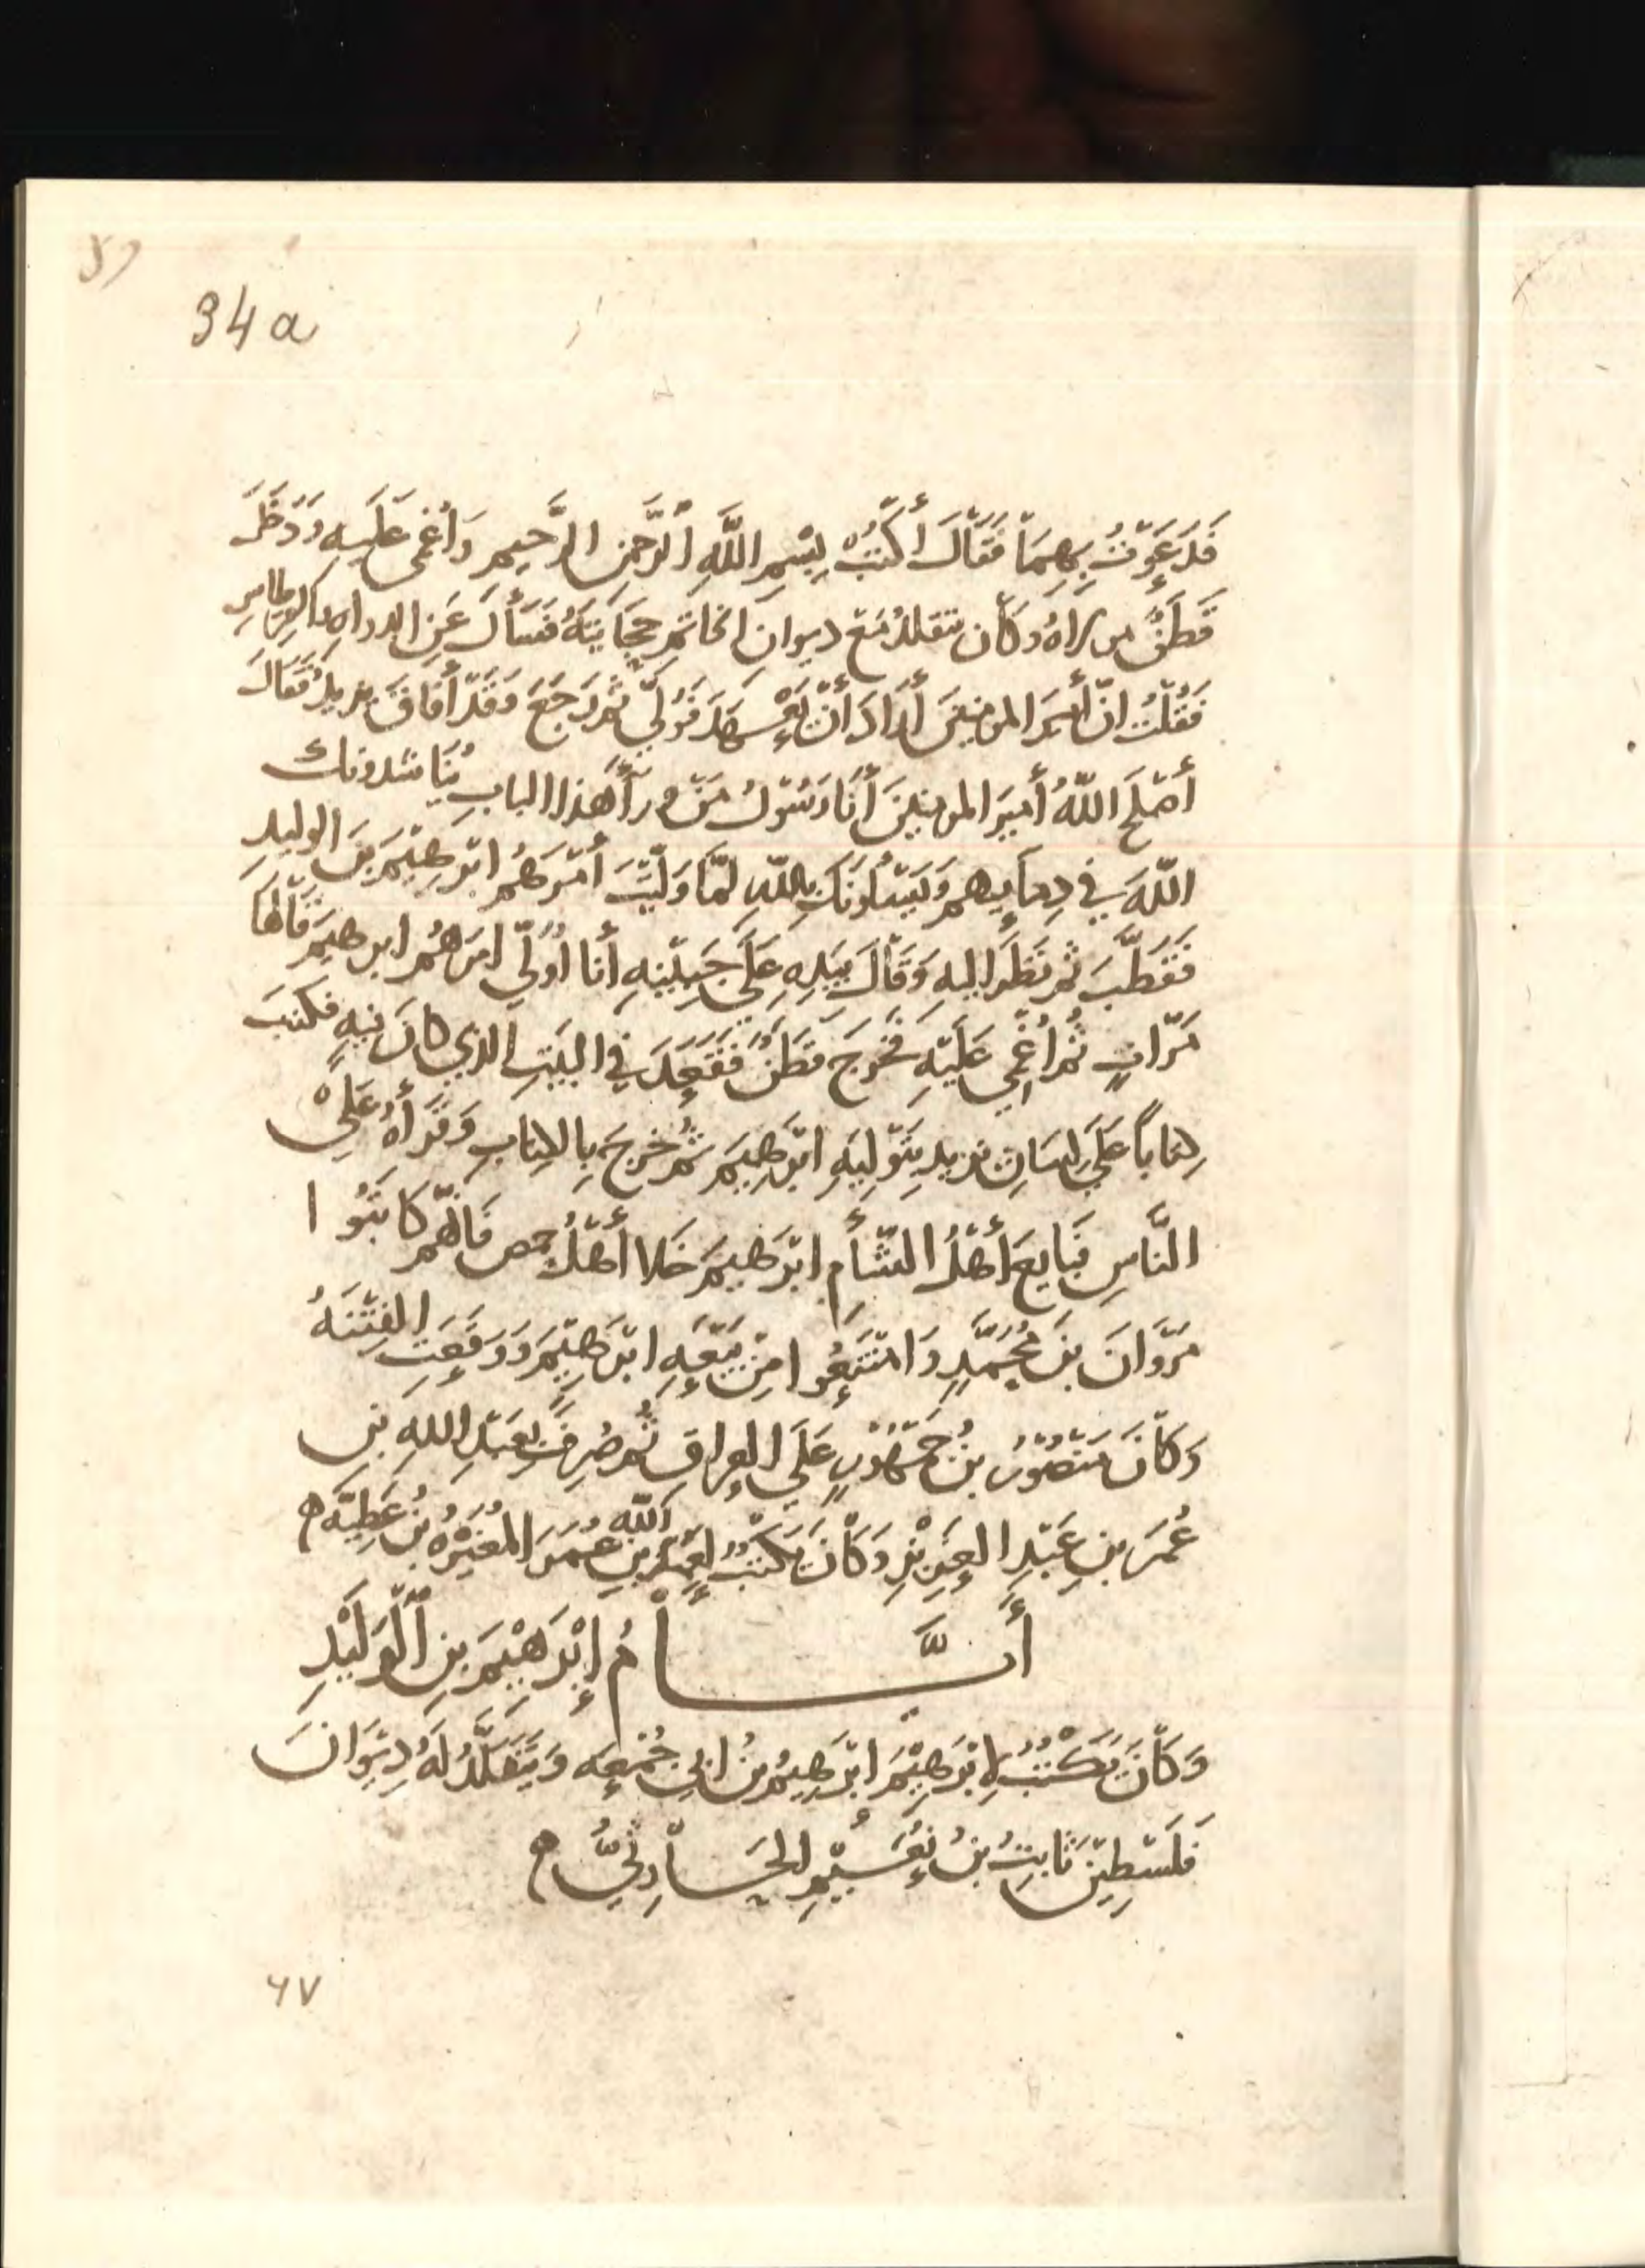 34a
فَدَعَوْتُ بِهِمَا فَقَالَ أُكْتُبْ بِسْمِ اللَّهِ الرَّحْمنِ الرَّحِيمِ وَأُغْمِيَ عَلَيهِ وَدَخَلَ
قَطَنٌ مولاهُ وكَان يتقلدُ مَعَ ديوان الخاتم حِجَابَتَهُ فَسَأَلَ عَنِ الدواه والقرطاسِ
فَقُلْتُ انّ أَميرَ المومنينَ أَرَادَ أَنْ يَعْهَدَ فَوَلَّي ثم رَجَعَ وَقَدْ أَفَاقَ يزيدُ فَقَالَ
أَصْلَحَ اللَّهُ أَميرَ المومنينَ أَنَا رَسُولُ مَنْ ورأ هَذا البابِ يُنَاشدونك
اللَّهَ في دِمايِهم وَيَسْأَلونَكَ بِاللهِ لمَّا وَلَّيْتَ أَمْرَهُم ابْرَهِيْمَ بنَ الوليدِ
فَقَطَّبَ ثم نَظَرَ اليهِ وَقَالَ بِيَدِهِ عَلَي جَبِيْنِهِ أَنا أُوَلّي امرَهُم ابرهيمَ قَالهَا
مَرّاتٍ ثُم أُغْمِي عَلَيْهِ فَخَرجَ قَطَنٌ فَقَعَدَ في البَيتِ الذي كانَ فيهِ فكتبَ
كِتاباً عَلَي لِسَانِ يزيد بِتَوْلِيَهِ ابْرَهِيمَ ثم خرجَ بِالكِتابِ وَقَرَأهُ عَلَي
النَّاسِ فَبَايعَ أَهْلُ الشَّأمِ ابْرَهيمَ خَلا أَهْلَ حمص فَانَّهُم كَاتَبُوا
مَرْوَانَ بنَ مُحَمَّدٍ وَامْتَنَعُوا مِنْ بَيْعَهِ ابْرَهِيْمَ وَوَقَعَتِ الفِتْنَهُ
وَكَانَ مَنْصُوْرُ بنُ جُمْهُوْرٍ عَلَي العِراقِ ثُم صُرِفَ بِعَبْدِ اللهِ بنِ
عُمَرَ بنِ عَبْدِ العَزِيْزِ وَكَانَ يَكْتُبُ لِعَبْدِ اللّه بنِ عُمَرَ المُغِيْرَهُ بنُ عَطِيَّه
أَيَّامُ إِبْرَهِيْمَ بنِ الْوَلِيْدِ
وَكَانَ يَكْتُبُ لِابْرَهِيْمَ ابْرَهِيمُ بنُ ابِي جُمْعَه وَيَتَقَلَّدُ لَهُ دِيْوَانَ
فَلَسْطِيْنَ ثَابِتُ بنُ نُعَيْمٍ الجُذَامِيُّ
٦٧